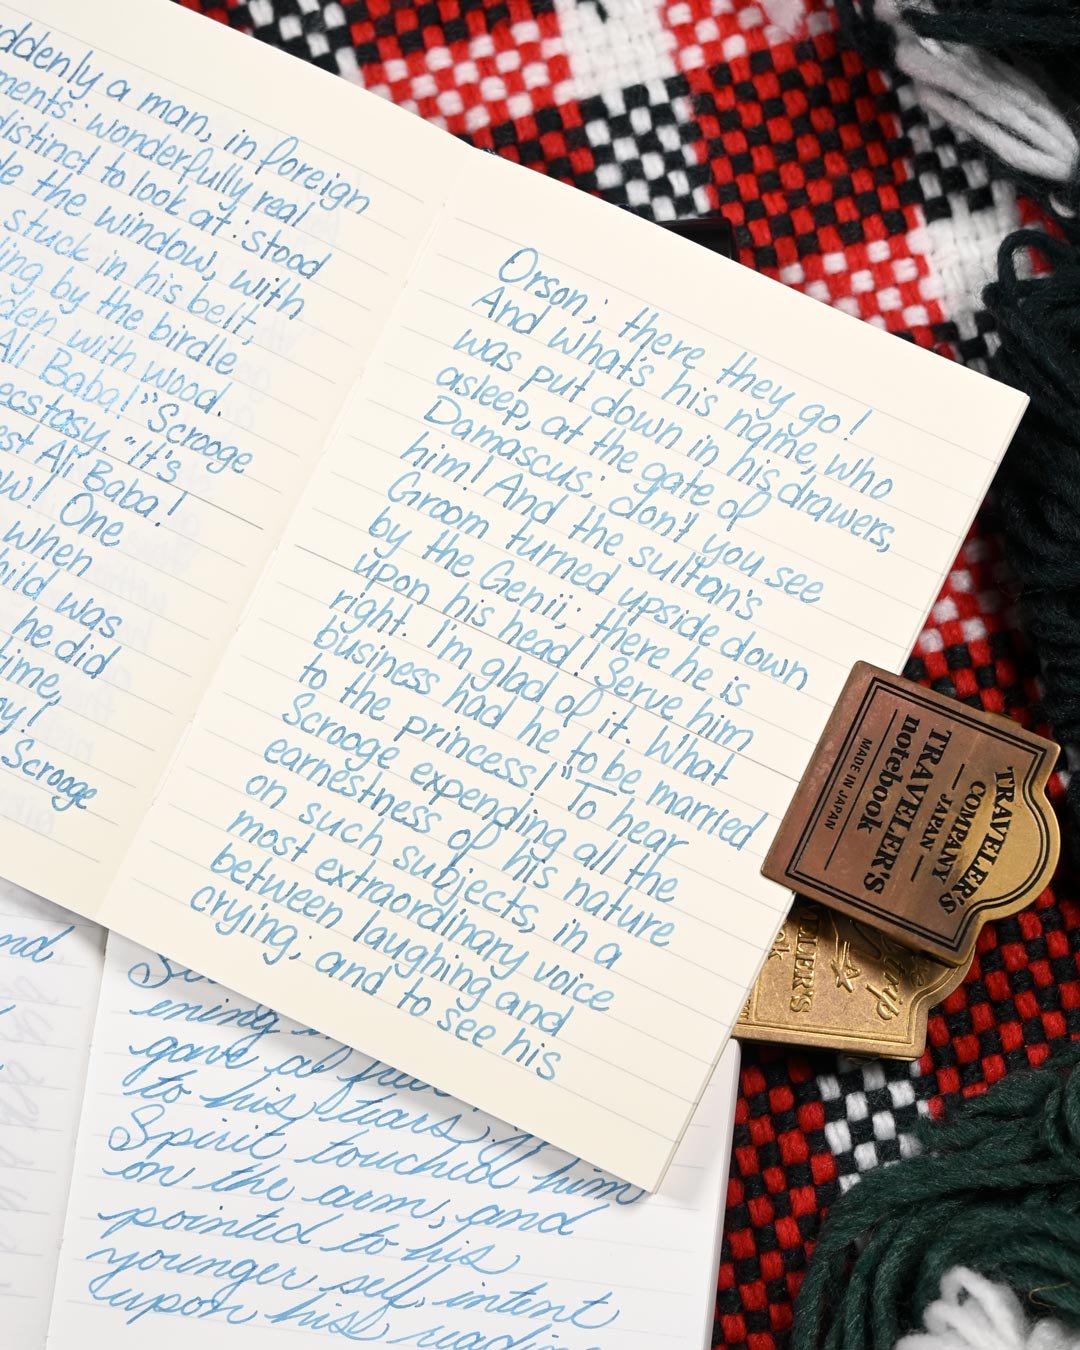 ddenly a man, in foreign
ments: wonderfully real
distinct to look at: stood
the window, with
stuck in his belt,
ing by the birdle
den with wood.
Ali Baba!" Scrooge
ecstasy. "It's
est Ali Baba!
ow! One
when
hild was
he did
time,
oy!
Scrooge
Orson; there they go!
And what's his name, who
was put down in his drawers,
asleep, at the gate of
Damascus; don't you see
him! And the sultan's
Groom turned upside down
by the Genii; there he is
upon his head! Serve him
right. I'm glad of it. What
business had he to be married
to the princess!" To hear
Scrooge expending all the
earnestness of his nature
on such subjects, in a
most extraordinary voice
between laughing and
crying; and to see his
nd
ening
gave
to his tears.
Spirit touched him
on the arm, and
pointed to his
younger self, intent
upon his
TRAVELER'S
COMPANY
JAPAN
TRAVELER'S
notebook
MADE IN JAPAN